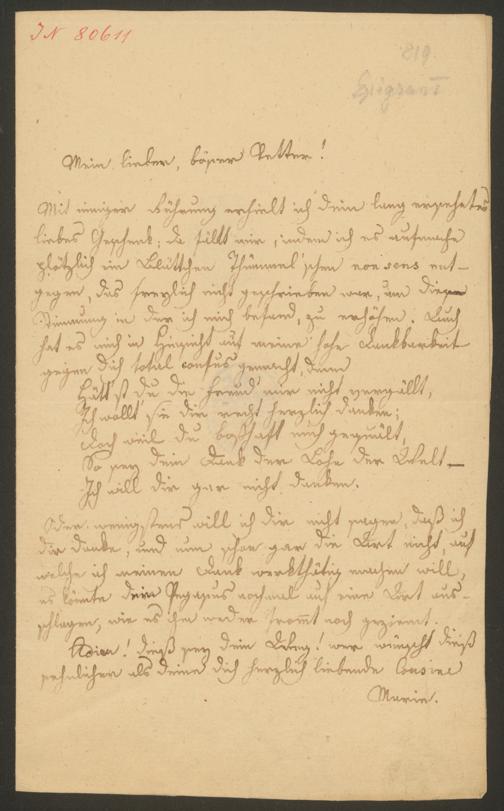 IN 80611
819.
Mein lieber, böser Vetter!
Mit inniger Rührung erhielt ich Dein lang ersehntes
liebes Geschenk; da fällt mir, indem ich es aufmache
plötzlich ein Blättchen Thümmel'schen nonsens ent-
gegen, das freylich nicht geschrieben war, um diese
Stimmung in der ich mich befand, zu erhöhen. Auch
hat es mich in Hinsicht auf meine hohe Dankbarkeit
gegen Dich total confus gemacht, denn
Hätt'st du die Freud' mir nicht vergällt,
Ich wollt' sie dir recht herzlich danken;
Doch weil du boshaft mich gequält,
So sey dein Dank der Lohn der Welt –
Ich will dir gar nicht danken.
Oder wenigstens will ich dir nicht sagen, daß ich
dir danke, und nun schon gar die Art nicht, auf
welche ich meinen Dank werkthätig machen will,
es könnte dein Pegasus nochmal auf eine Art aus-
schlagen, wie es ihm weder frommt noch geziemt.
Adieu! dieß sey dein Weg! wer wünscht dieß
sehnlicher als deine dich herzlich liebende Cousine
Marie.